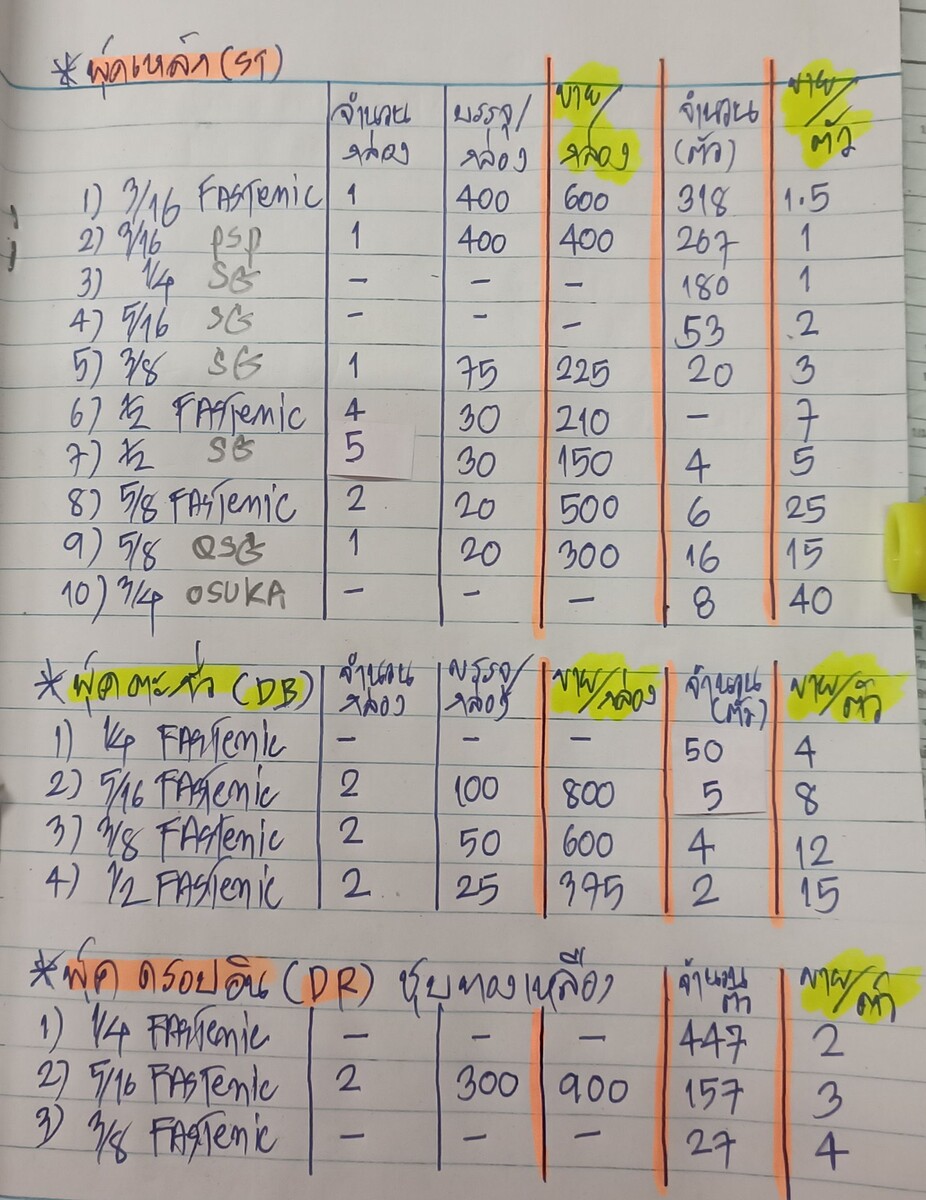 * พุ๊คเหล็ก (ST)
จำนวนกล่อง บรรจุ/กล่อง ขาย/กล่อง จำนวน(ตัว) ขาย/ตัว
1) 3/16 FASTEMIC 1 400 600 318 1.5
2) 3/16 PSP 1 400 400 267 1
3) 1/4 SG - - - 180 1
4) 5/16 SG - - - 53 2
5) 3/8 SG 1 75 225 20 3
6) 1/2 FASTEMIC 4 30 210 - 7
7) 1/2 SG 5 30 150 4 5
8) 5/8 FASTEMIC 2 20 500 6 25
9) 5/8 QSG 1 20 300 16 15
10) 3/4 OSUKA - - - 8 40
* พุ๊คตะกั่ว (DB) จำนวนกล่อง บรรจุ/กล่อง ขาย/กล่อง จำนวน(ตัว) ขาย/ตัว
1) 1/4 FASTEMIC - - - 50 4
2) 5/16 FASTEMIC 2 100 800 5 8
3) 3/8 FASTEMIC 2 50 600 4 12
4) 1/2 FASTEMIC 2 25 375 2 15
* พุ๊ค ดรอปอิน (DR) ชุบทองเหลือง จำนวนตัว ขาย/ตัว
1) 1/4 FASTEMIC - - - 447 2
2) 5/16 FASTEMIC 2 300 900 157 3
3) 3/8 FASTEMIC - - - 27 4